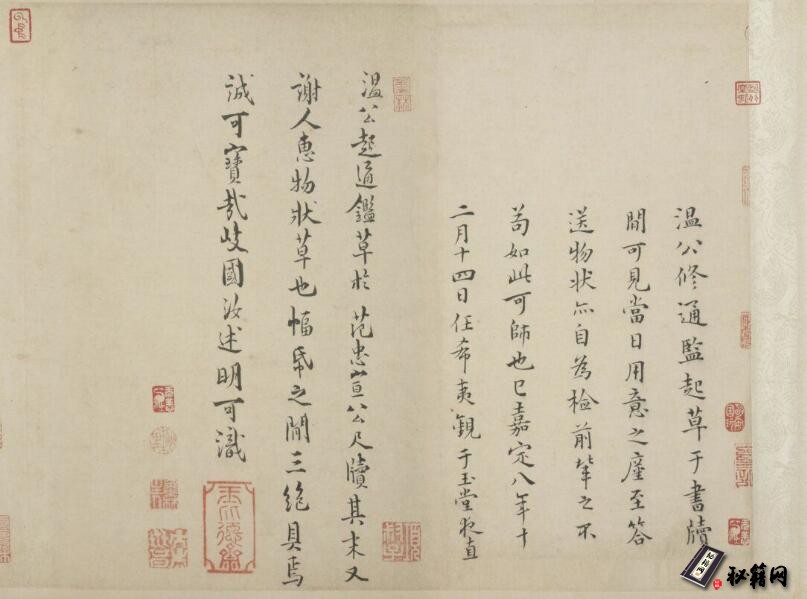 温公修通監起草于書牘
間可見當日用意之廑至答
送物状亦自為檢前輩之不
苟如此可師也已嘉定八年十
二月十四日任希夷觀于玉堂夜直
温公起通鑑草於范忠宣公尺牘其末又
謝人惠物狀草也幅帋之間三絶具焉
誠可寶哉歧國汝述明可識
秘籍网